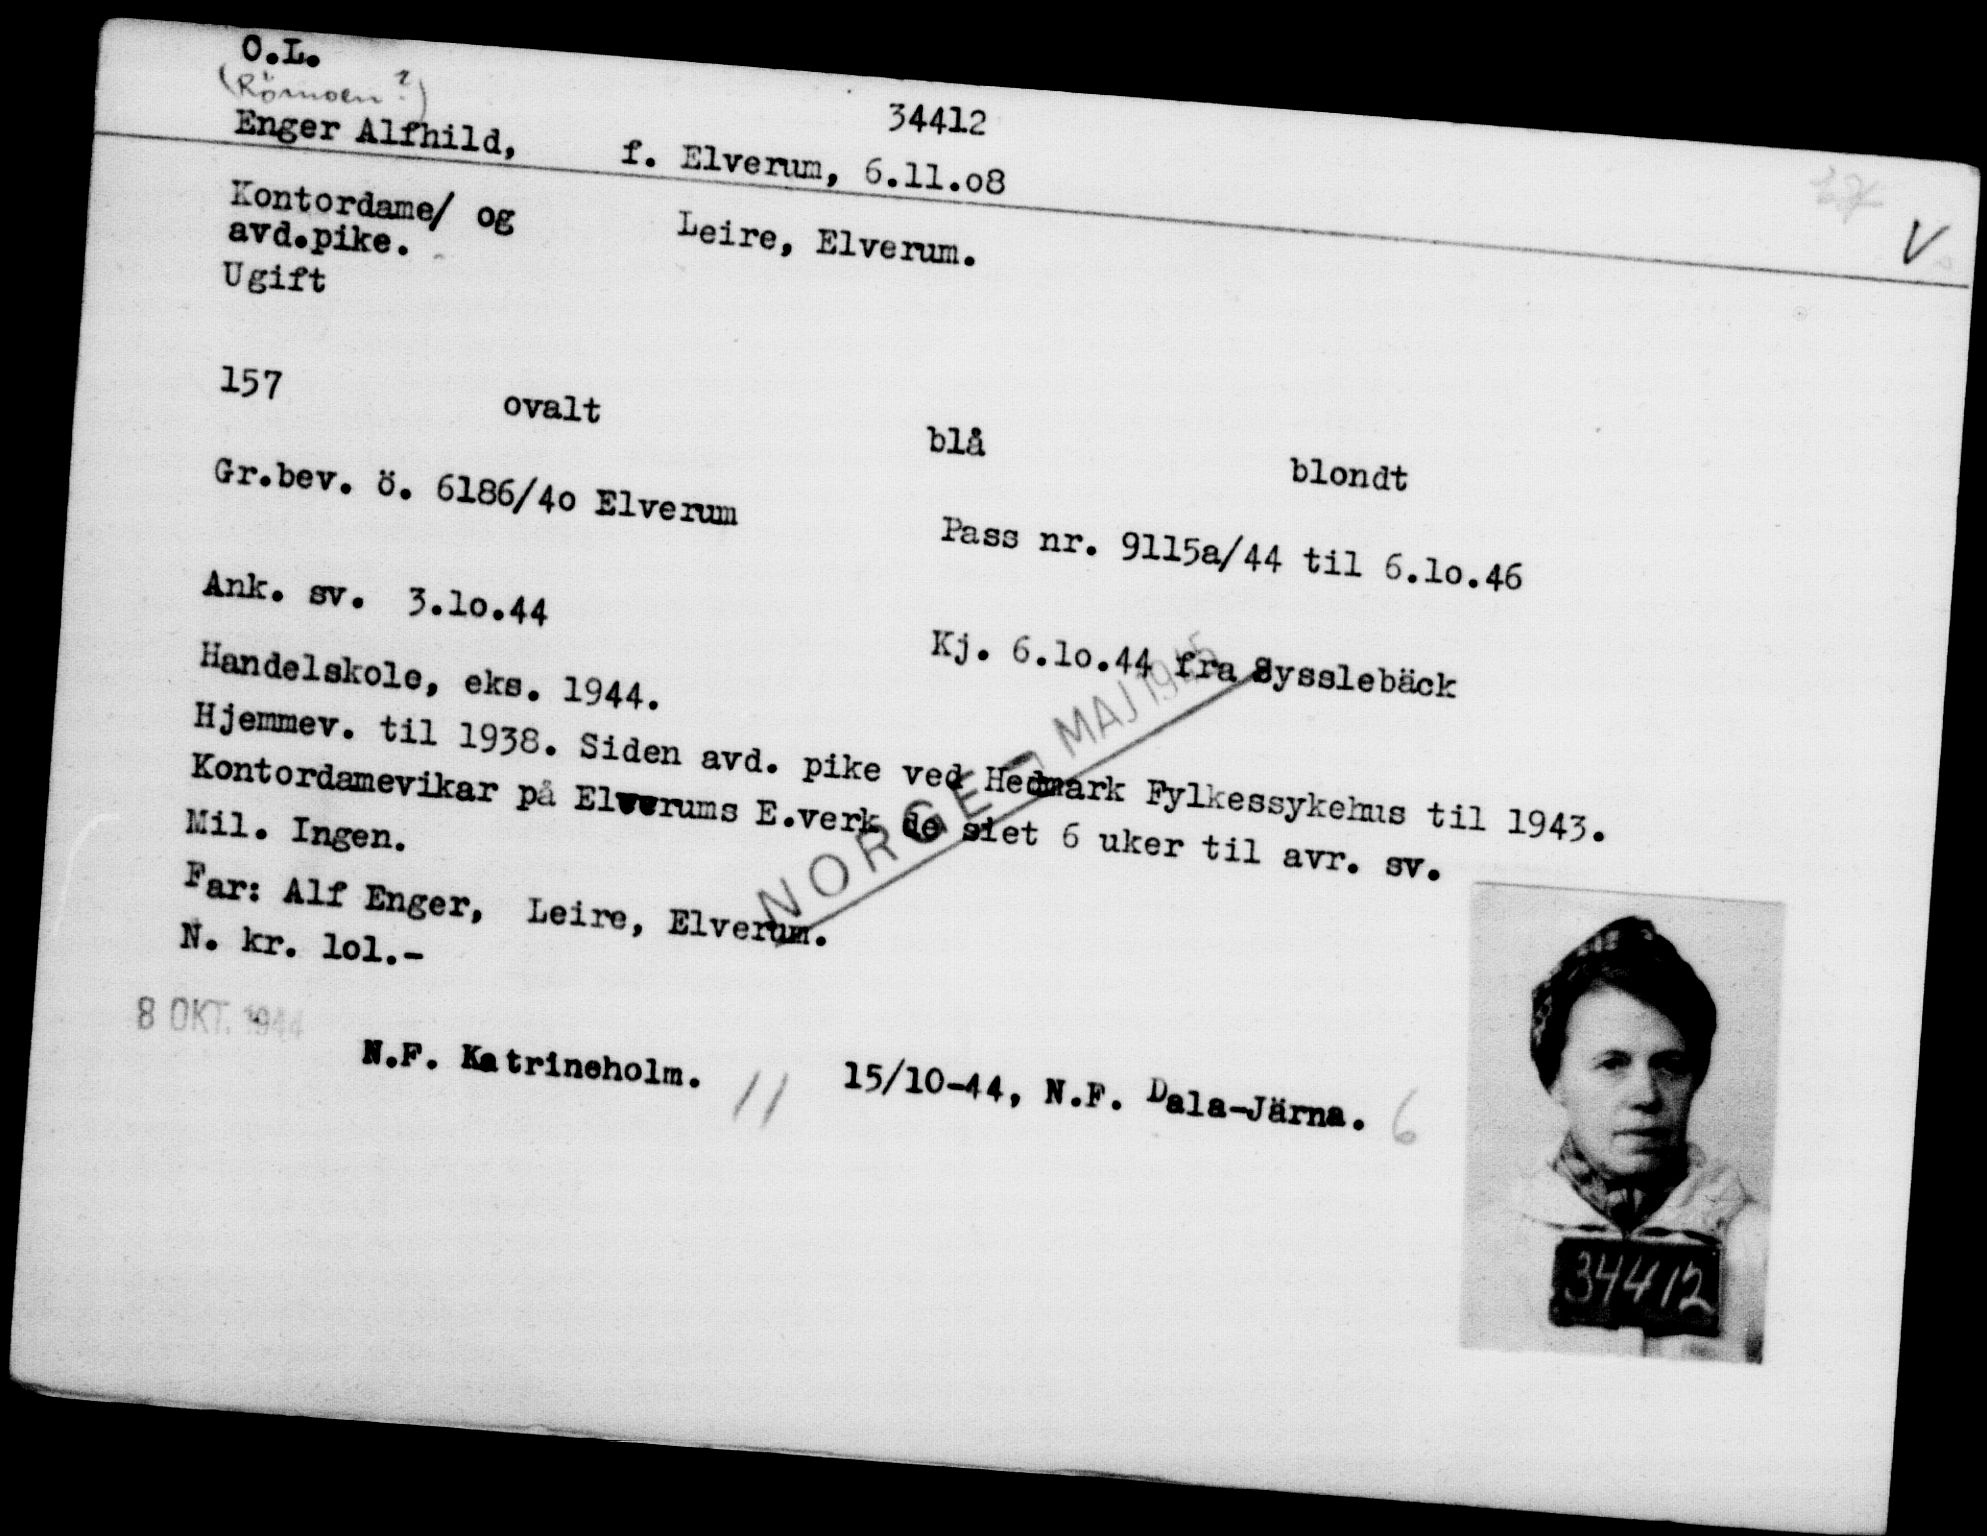 O.L.
(Römoen?)
34412
Enger Alfhild, f. Elverum, 6.11.o8
Kontordame/ og
avd.pike.
Leire, Elverum.
Ugift
157 ovalt blå blondt
Gr.bev. ö. 6186/4o Elverum
Pass nr. 9115a/44 til 6.1o.46
Ank. sv. 3.1o.44
Kj. 6.1o.44 fra Sysslebäck
Handelskole, eks. 1944.
Hjemmev. til 1938. Siden avd. pike ved Hedmark Fylkessykehus til 1943.
Kontordamevikar på Elverums E.verk de siet 6 uker til avr. sv.
Mil. Ingen.
Far: Alf Enger, Leire, Elverum.
N. kr. lol.-
NORGE - MAJ 1945
8 OKT. 1944
N.F. Katrineholm. // 15/10-44, N.F. Dala-Järna. 6
34412
V